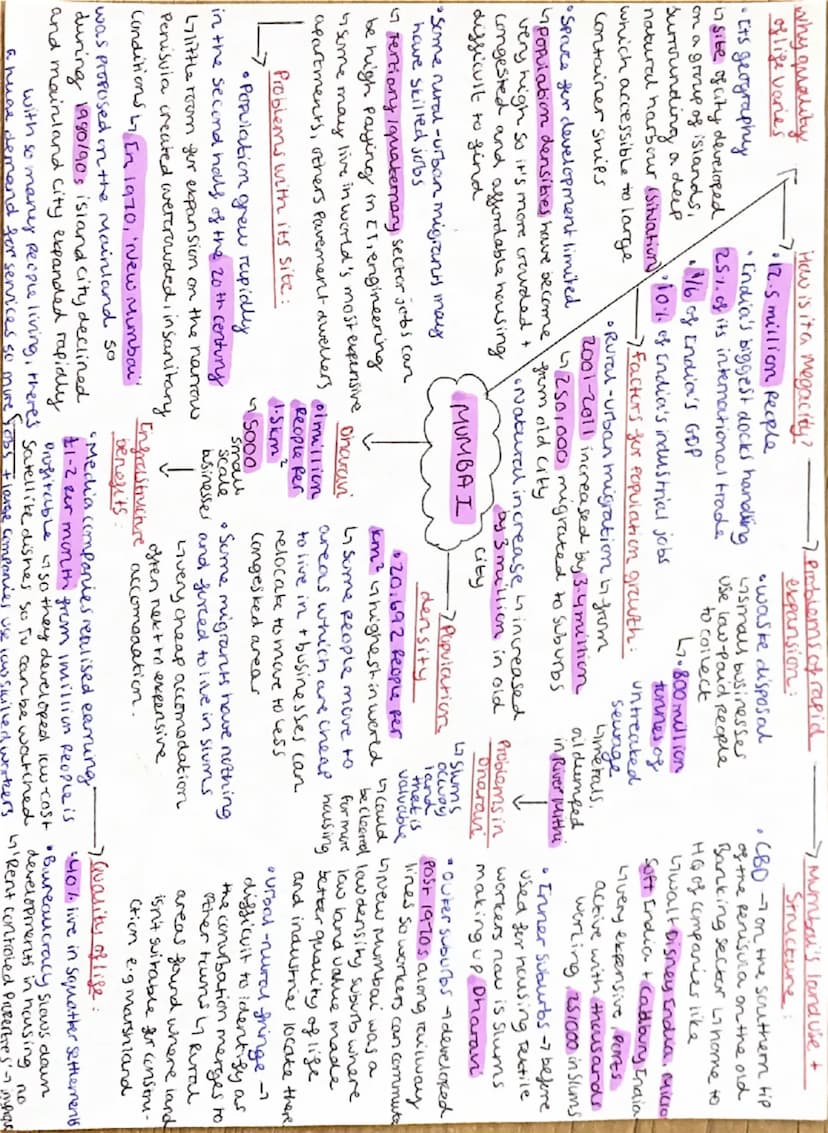 Why quality
of life varies
• Its geography
↳ site of city developed
on a group of islands,
surrounding a deep
natural harbour (situation)
which accessible to large
container ships
• Space for development limited
↳ population densities have become
very high so it's more crowded +
congested and affordable housing
difficult to find
• Some rural-urban migrants may
have skilled jobs
↳ tertiary/quaternary sector jobs can
be high paying in I.T, engineering
↳ some may live in world's most expensive
apartments, others pavement dwellers
Problems with its site:
• Population grew rapidly
in the second half of the 20th century
↳ little room for expansion on the narrow
Penisula created overcrowded, insanitary
conditions ↳ In 1970, 'New Mumbai'
was proposed on the mainland so
during 1980/90s island city declined
and mainland city expanded rapidly
with so many people living, theres
a huge demand for services so more jobs + large companies use low skilled workers
How is it a megacity?
• 12.5 million people
• India's biggest docks handling
25% of its international trade
• 1/6 of India's GDP
• 10% of India's industrial jobs
Factors for population growth:
• Rural-urban migration ↳ from
2001-2011 increased by 3.4 million
↳ 250,000 migrated to suburbs
from old city
• Natural increase ↳ increased
by 3 million in old
city
MUMBAI
Dharavi
• 1 million
people per
1.5km²
↳ 5000
small
scale
businesses
Population
density
• 20,692 people per
km² ↳ highest in world
↳ some people move to
areas which are cheap
to live in + businesses can
relocate to move to less
congested areas
• Some migrants have nothing
and forced to live in slums
↳ very cheap accomodation
often next to expensive
accomodation.
Infrastructure
benefits:
• Media companies realised earning
£1-2 per month from 1 million people is
profitable ↳ so they developed low-cost
satellite dishes so TV can be watched
Problems of rapid
expansion:
• waste disposal
↳ small businesses
use low paid people
to collect
↳ • 800 million
tonnes of
untreated
sewage
↳ metals,
oil dumped
in River Mithi
Problems in
Dharavi
↳ slums
occupy
land
that is
valuable
↳ could
be cleared
for more
housing
Mumbai's land use +
structure:
• CBD → on the southern tip
of the penisula on the old
Banking sector ↳ home to
HQ of companies like
↳ Walt Disney India, Micro
soft India + Cadbury India
↳ very expensive, Ports
active with thousands
working, 25,000 in slums
• Inner suburbs → before
used for housing textile
workers now is slums
making up Dharavi
• Outer suburbs → developed
Post 1970s along railway
lines so workers can commute
↳ New Mumbai was a
low density suburb where
low land value made
better quality of life
and industries locate there
• Urban-rural fringe →
difficult to identify as
the conurbation merges to
other towns ↳ Rural
areas found where land
isn't suitable for constru-
ction e.g marshland
Quality of life:
• 40% live in squatter settlements
• Bureaucracy slows down
developments in housing no
↳ 'Rent controlled Properties' →